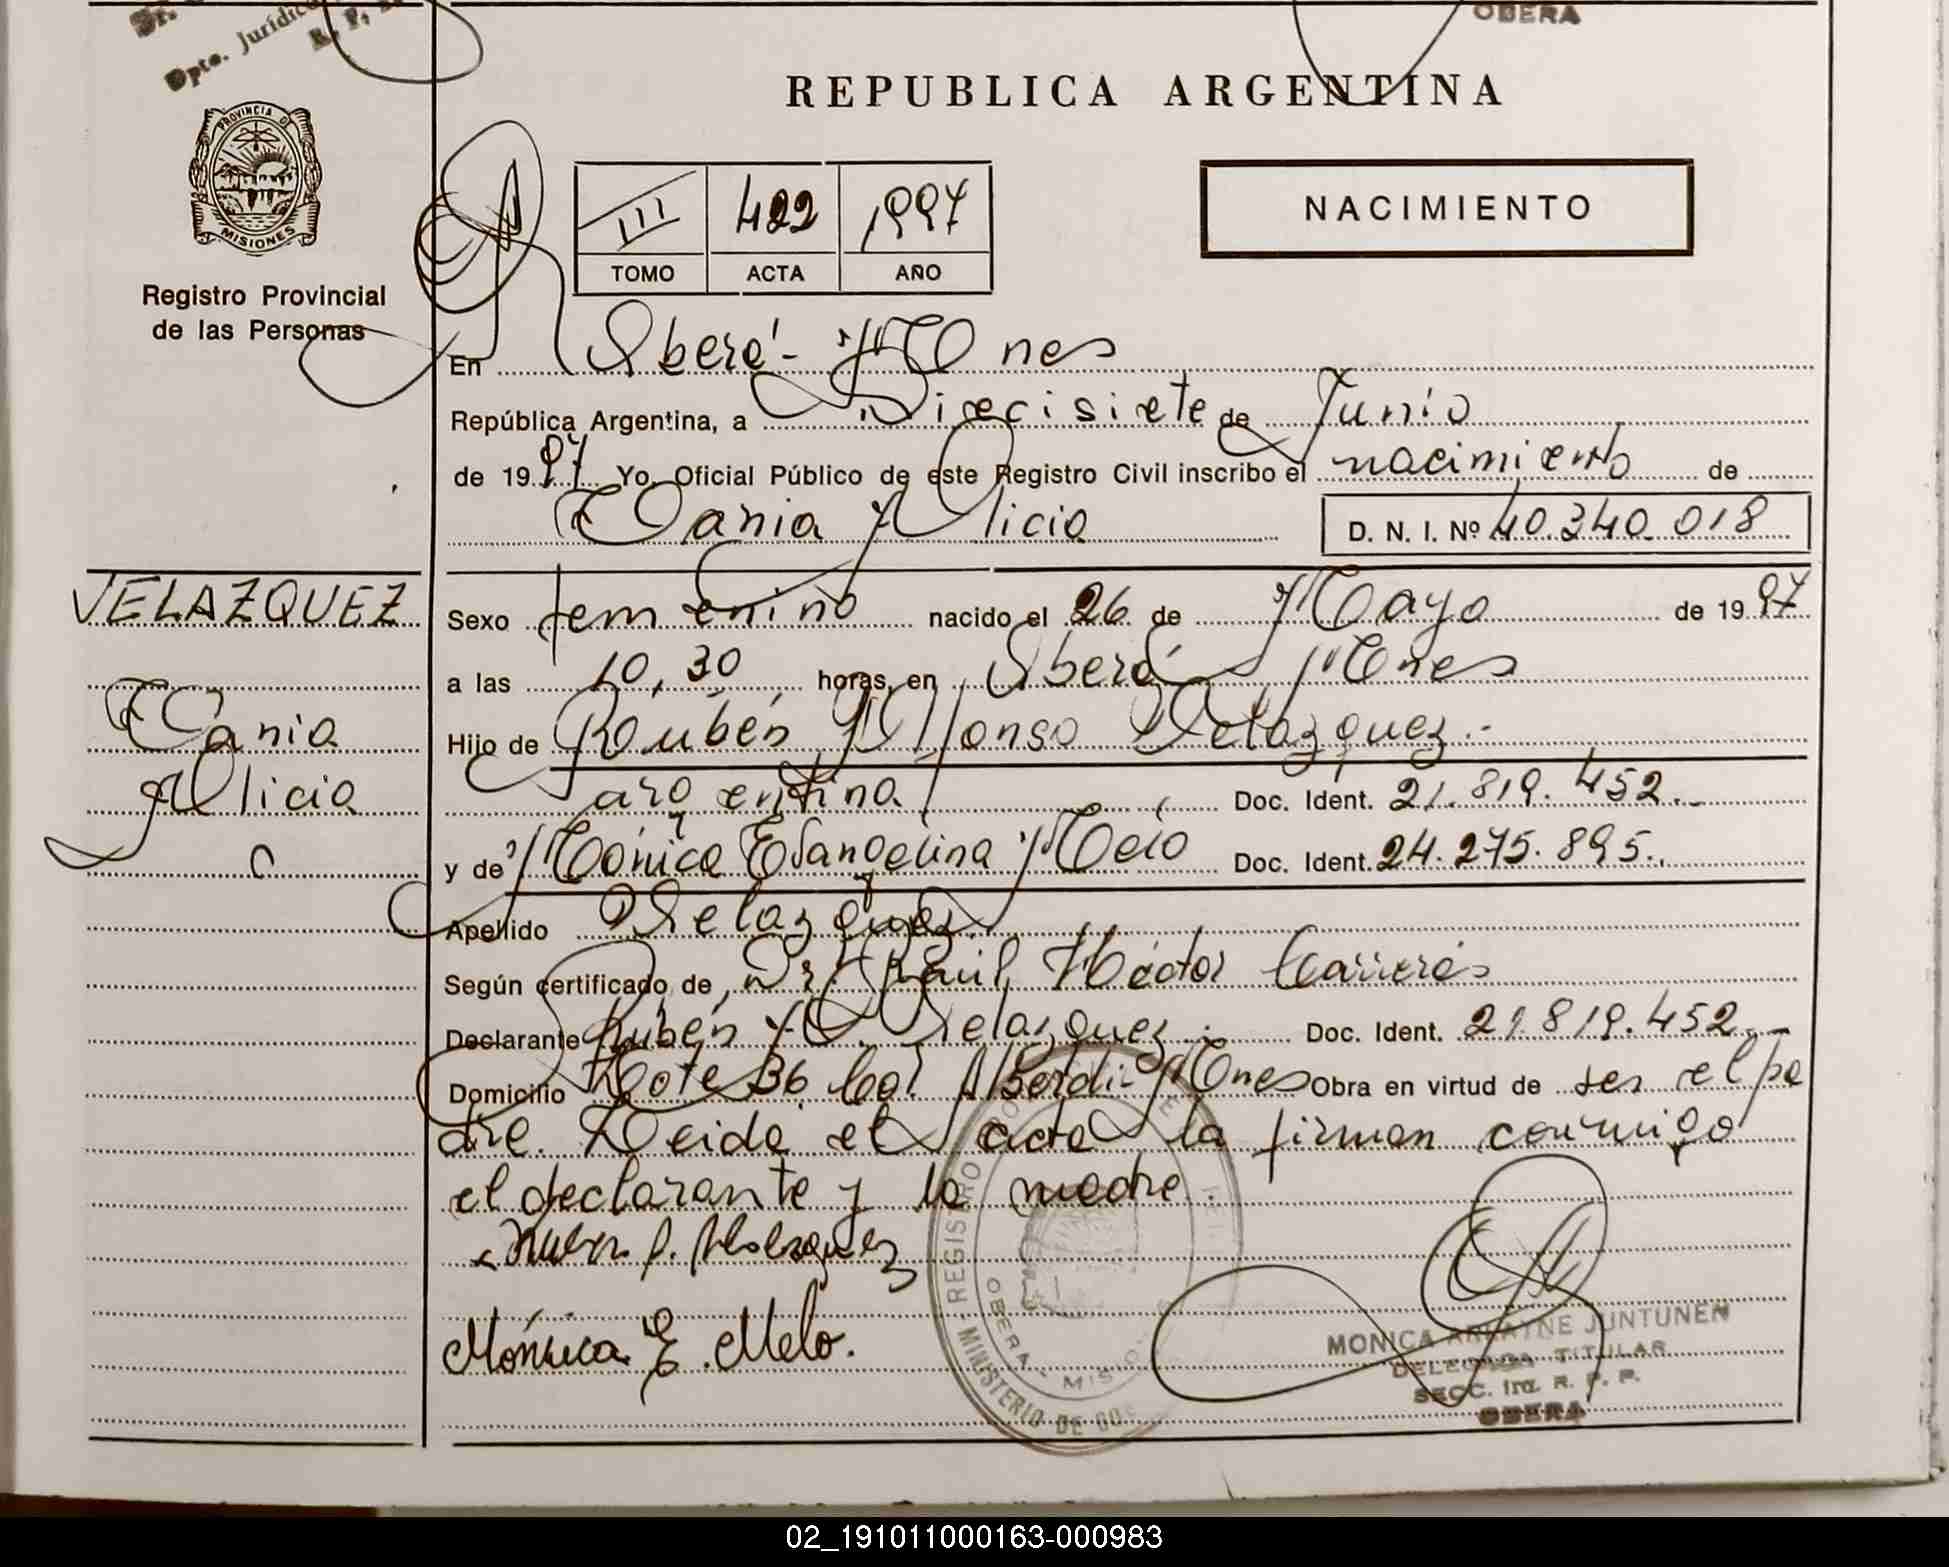 Dpto. Jurídico
R. P.
OBERA
REPUBLICA ARGENTINA
PROVINCIA DE
MISIONES
Registro Provincial
de las Personas
III 422 1997
TOMO ACTA AÑO
NACIMIENTO
En Oberá - Mnes
República Argentina, a Diecisiete de Junio
de 1997 Yo, Oficial Público de este Registro Civil inscribo el nacimiento de
Tania Alicia D. N. I. Nº 40.340.018
VELAZQUEZ
Tania
Alicia
Sexo femenino nacido el 26 de Mayo de 1997
a las 10,30 horas, en Oberá Mnes
Hijo de Rubén Alfonso Velazquez.-
argentina Doc. Ident. 21.819.452.-
y de Mónica Evangelina Melo Doc. Ident. 24.275.895.
Apellido Velazquez
Según certificado de Dr. Raúl Héctor Carrerás
Declarante Rubén A. Velazquez.- Doc. Ident. 21.819.452.-
Domicilio Lote 36 Col Alberdi - Mnes Obra en virtud de ser el pa
dre. Leida el acta la firman conmigo
el declarante y la madre.
Ruben A. Velazquez
Mónica E. Melo.
REGISTRO
OBERA - MISIO
MINISTERIO DE GO
MONICA JUNTUNEN
DELEGADA TITULAR
SECC. 1ra. R. P. P.
OBERA
02_191011000163-000983